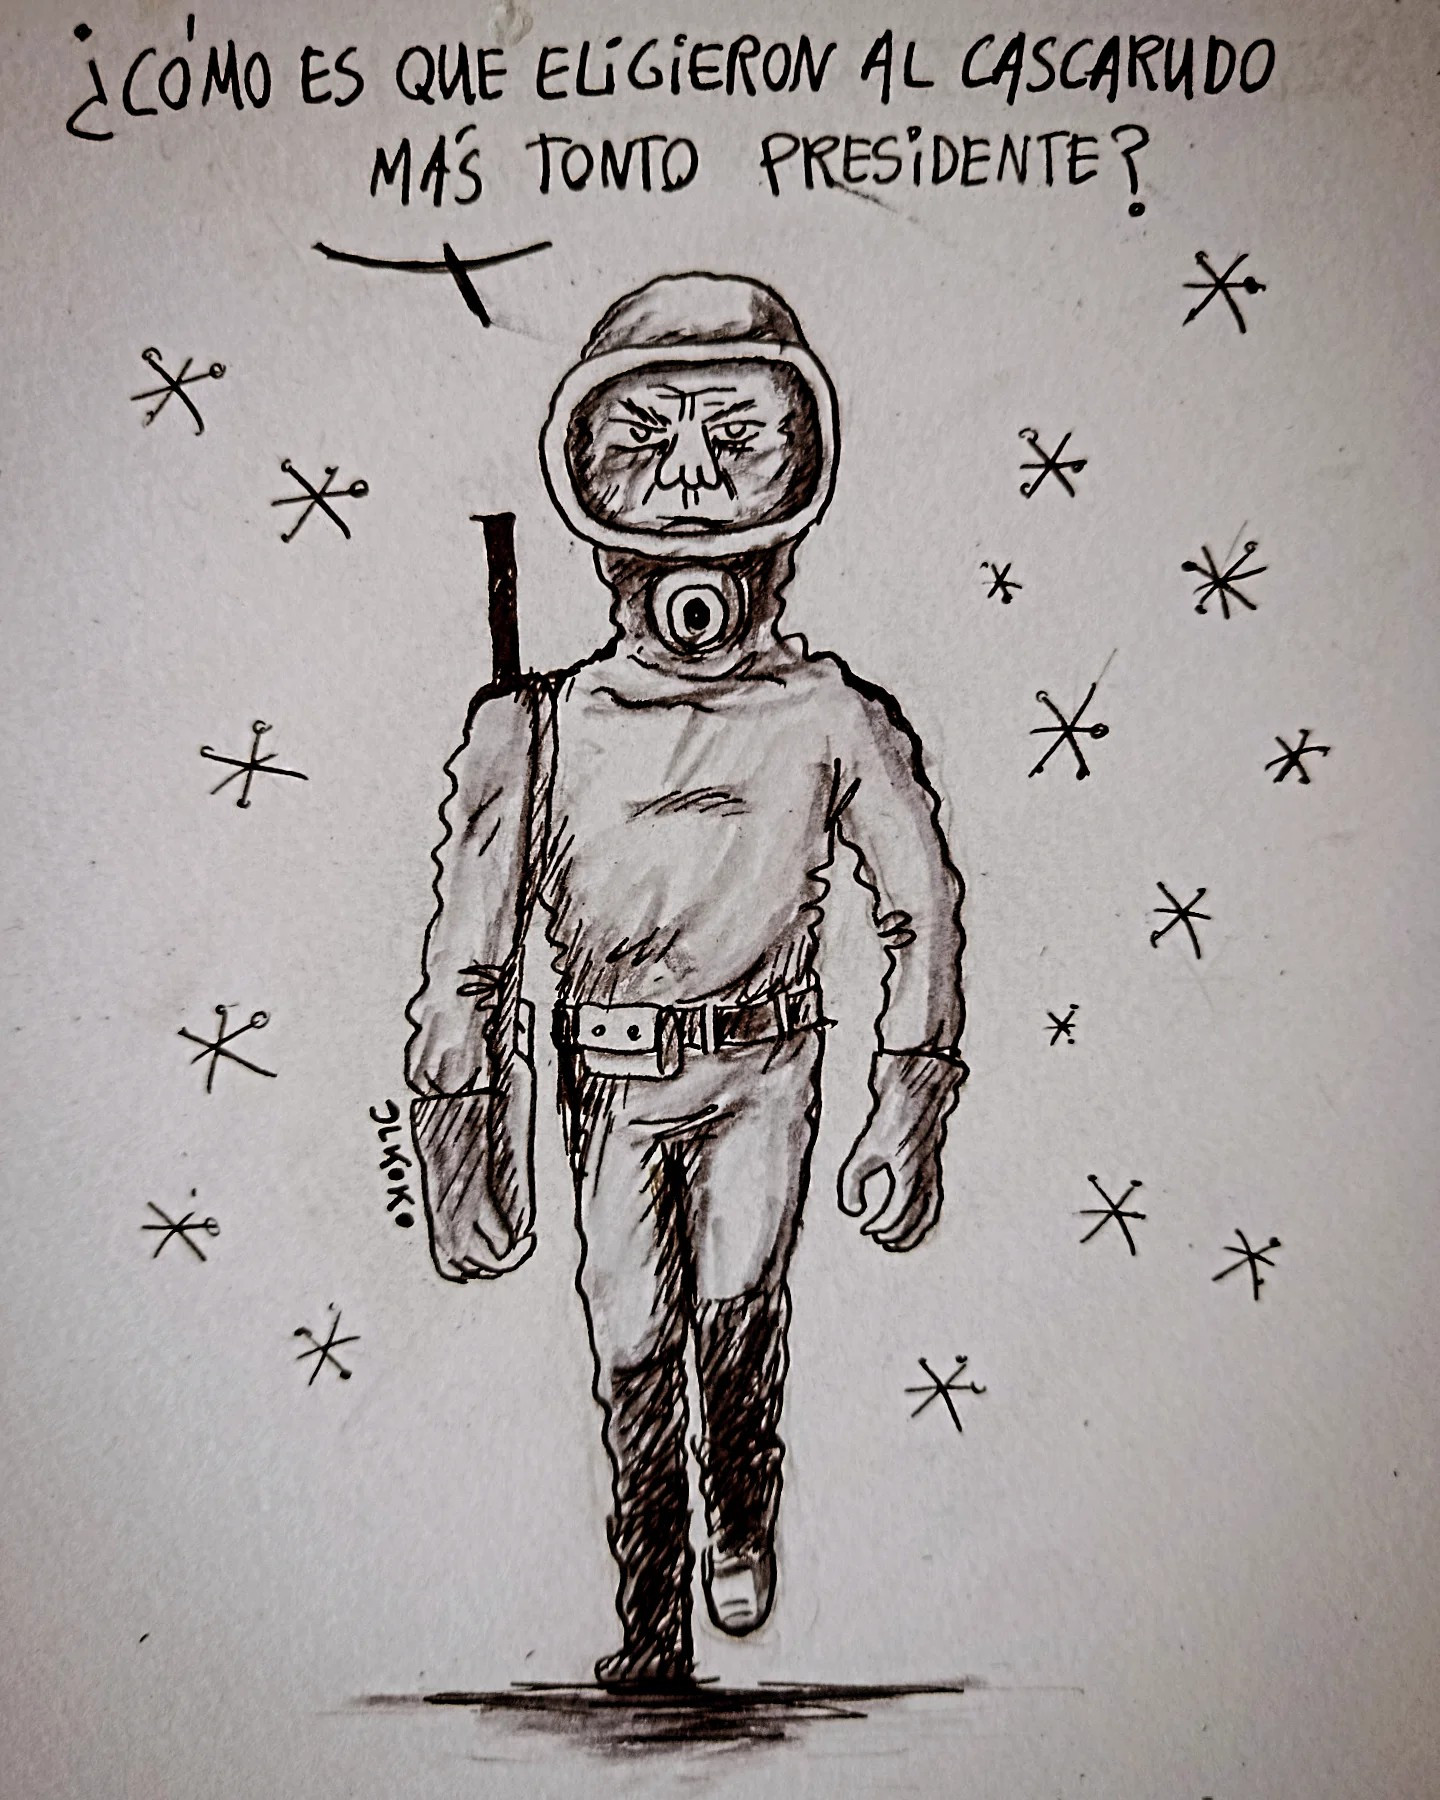 ¿CÓMO ES QUE ELIGIERON AL CASCARUDO
MÁS TONTO PRESIDENTE?